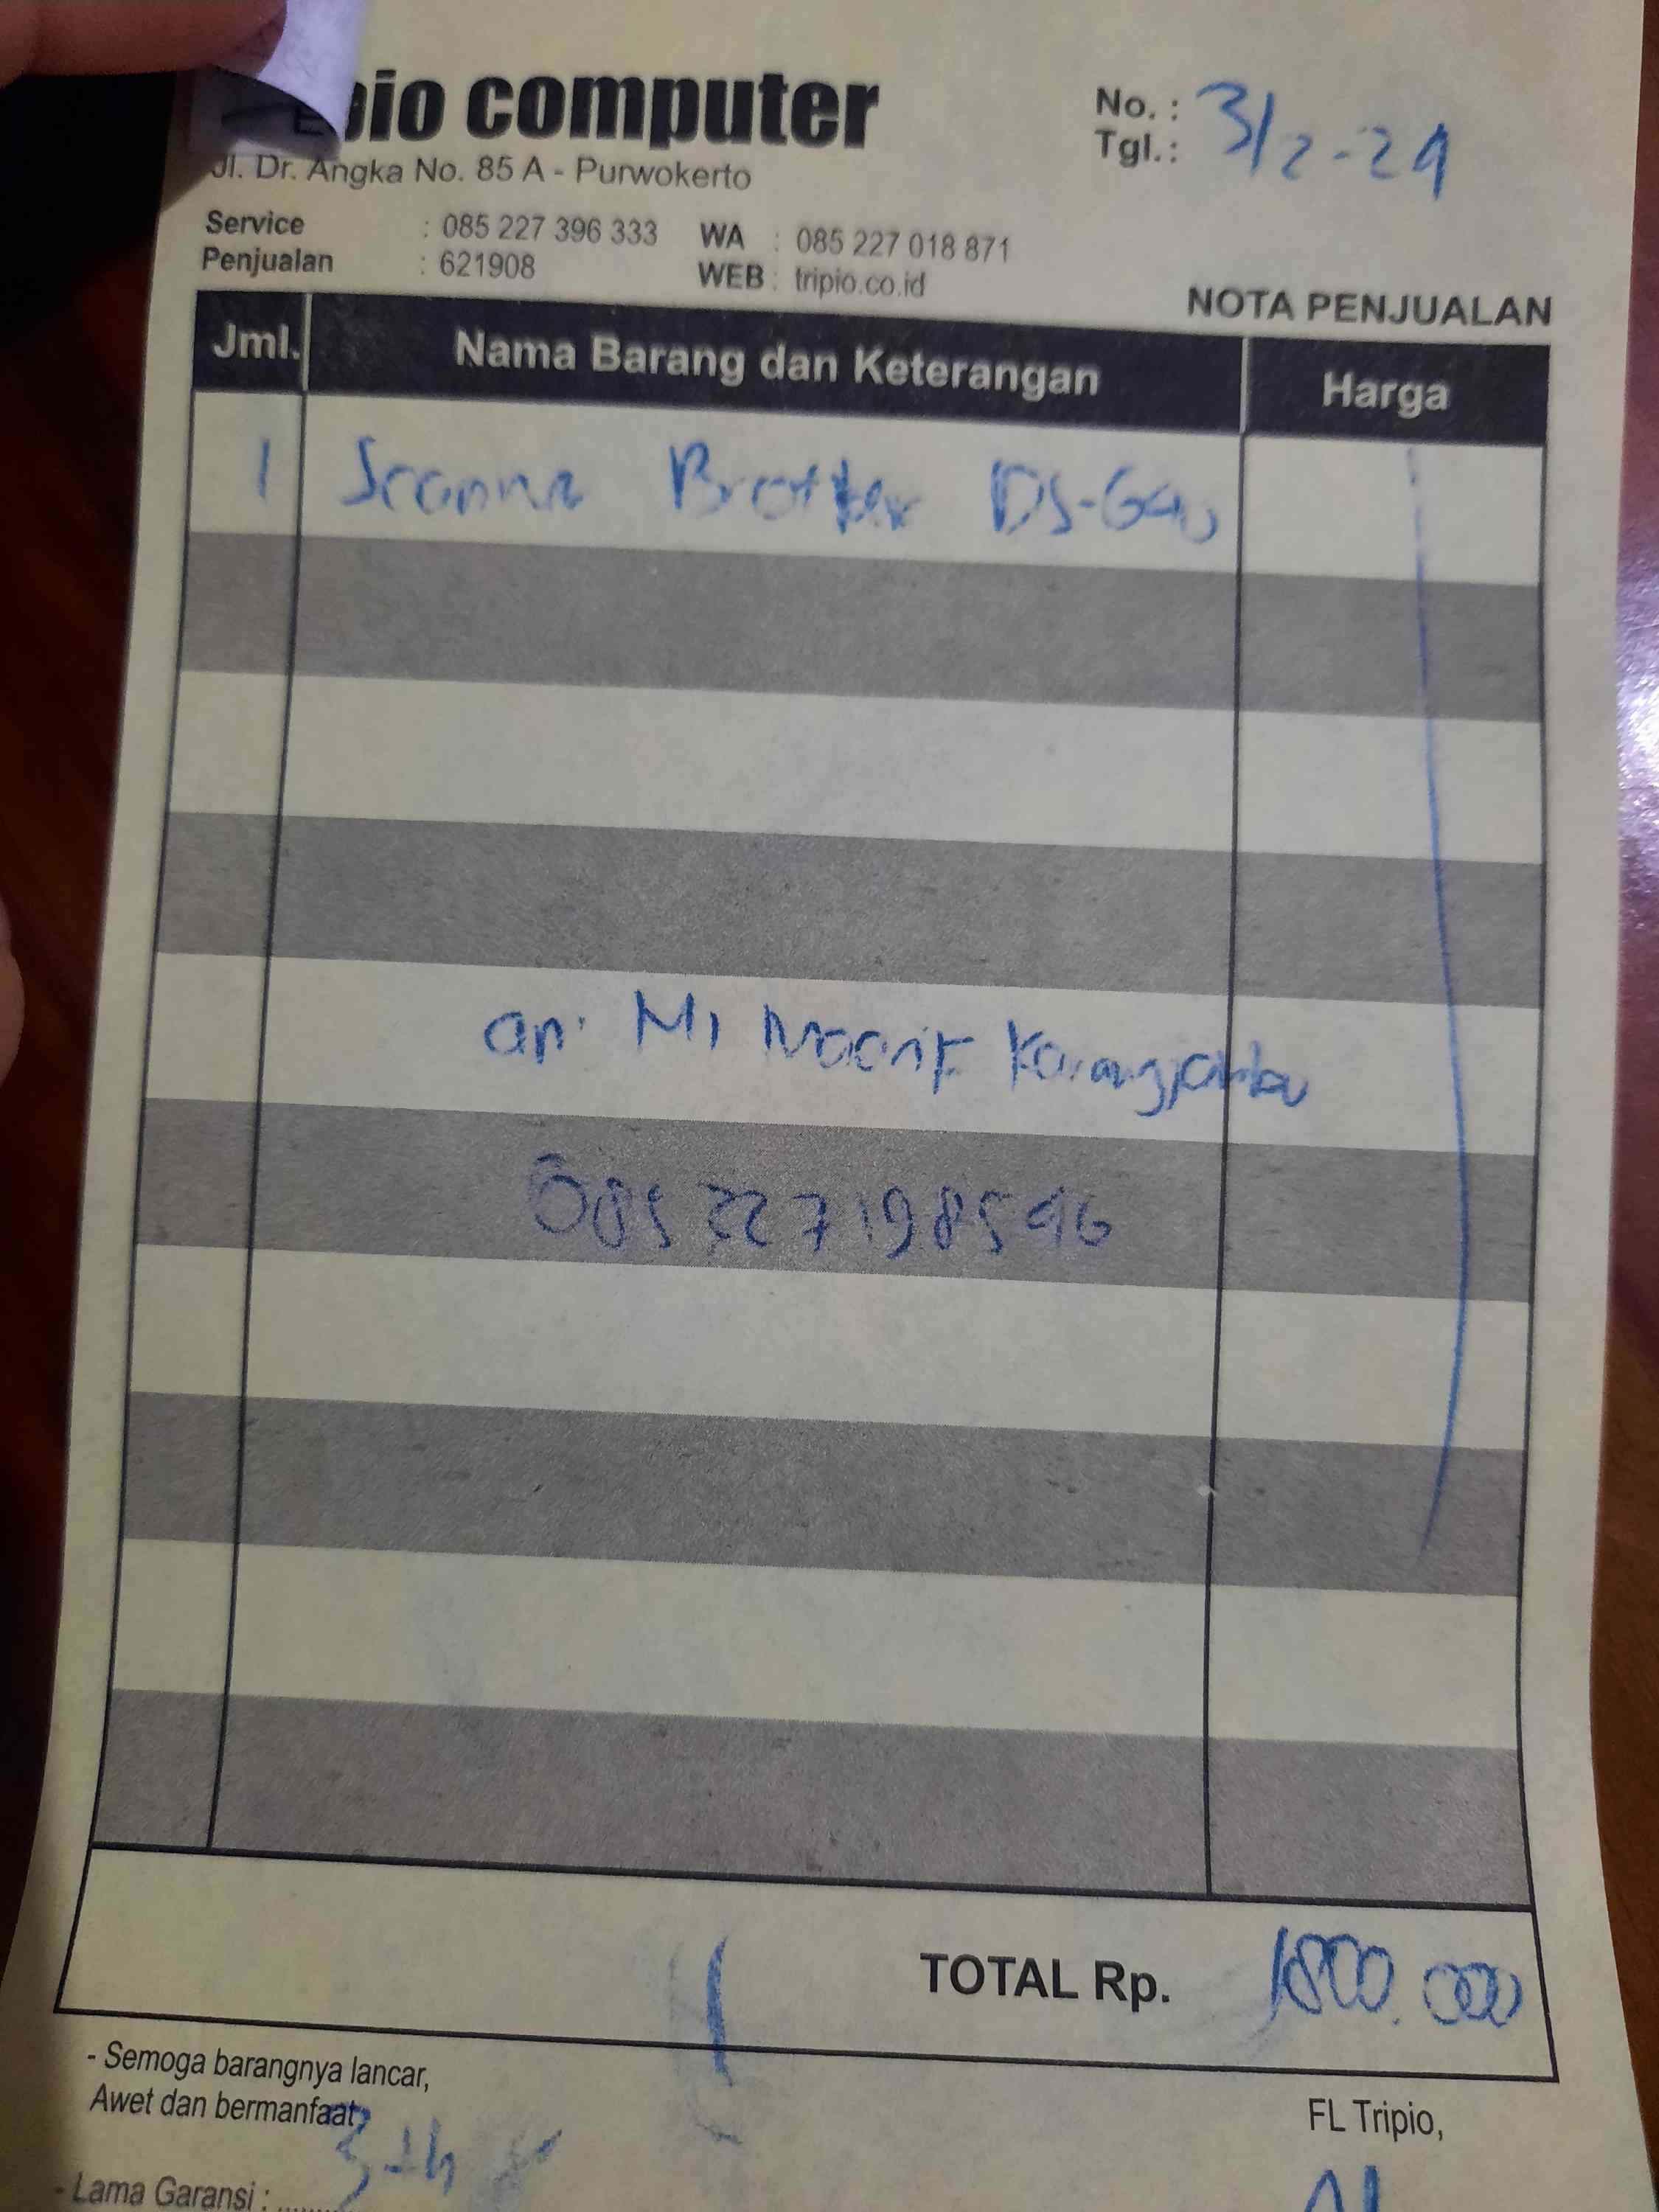 pio computer
Jl. Dr. Angka No. 85 A - Purwokerto
No. :
Tgl. : 3/2-24
Service : 085 227 396 333 WA : 085 227 018 871
Penjualan : 621908 WEB : tripio.co.id
NOTA PENJUALAN
Jml. Nama Barang dan Keterangan Harga
1 Scanner Brother DS-640
an. MI Maarif Karangjambu
085227198596
TOTAL Rp. 1800.000
- Semoga barangnya lancar,
Awet dan bermanfaat
FL Tripio,
- Lama Garansi : ........ 3 th